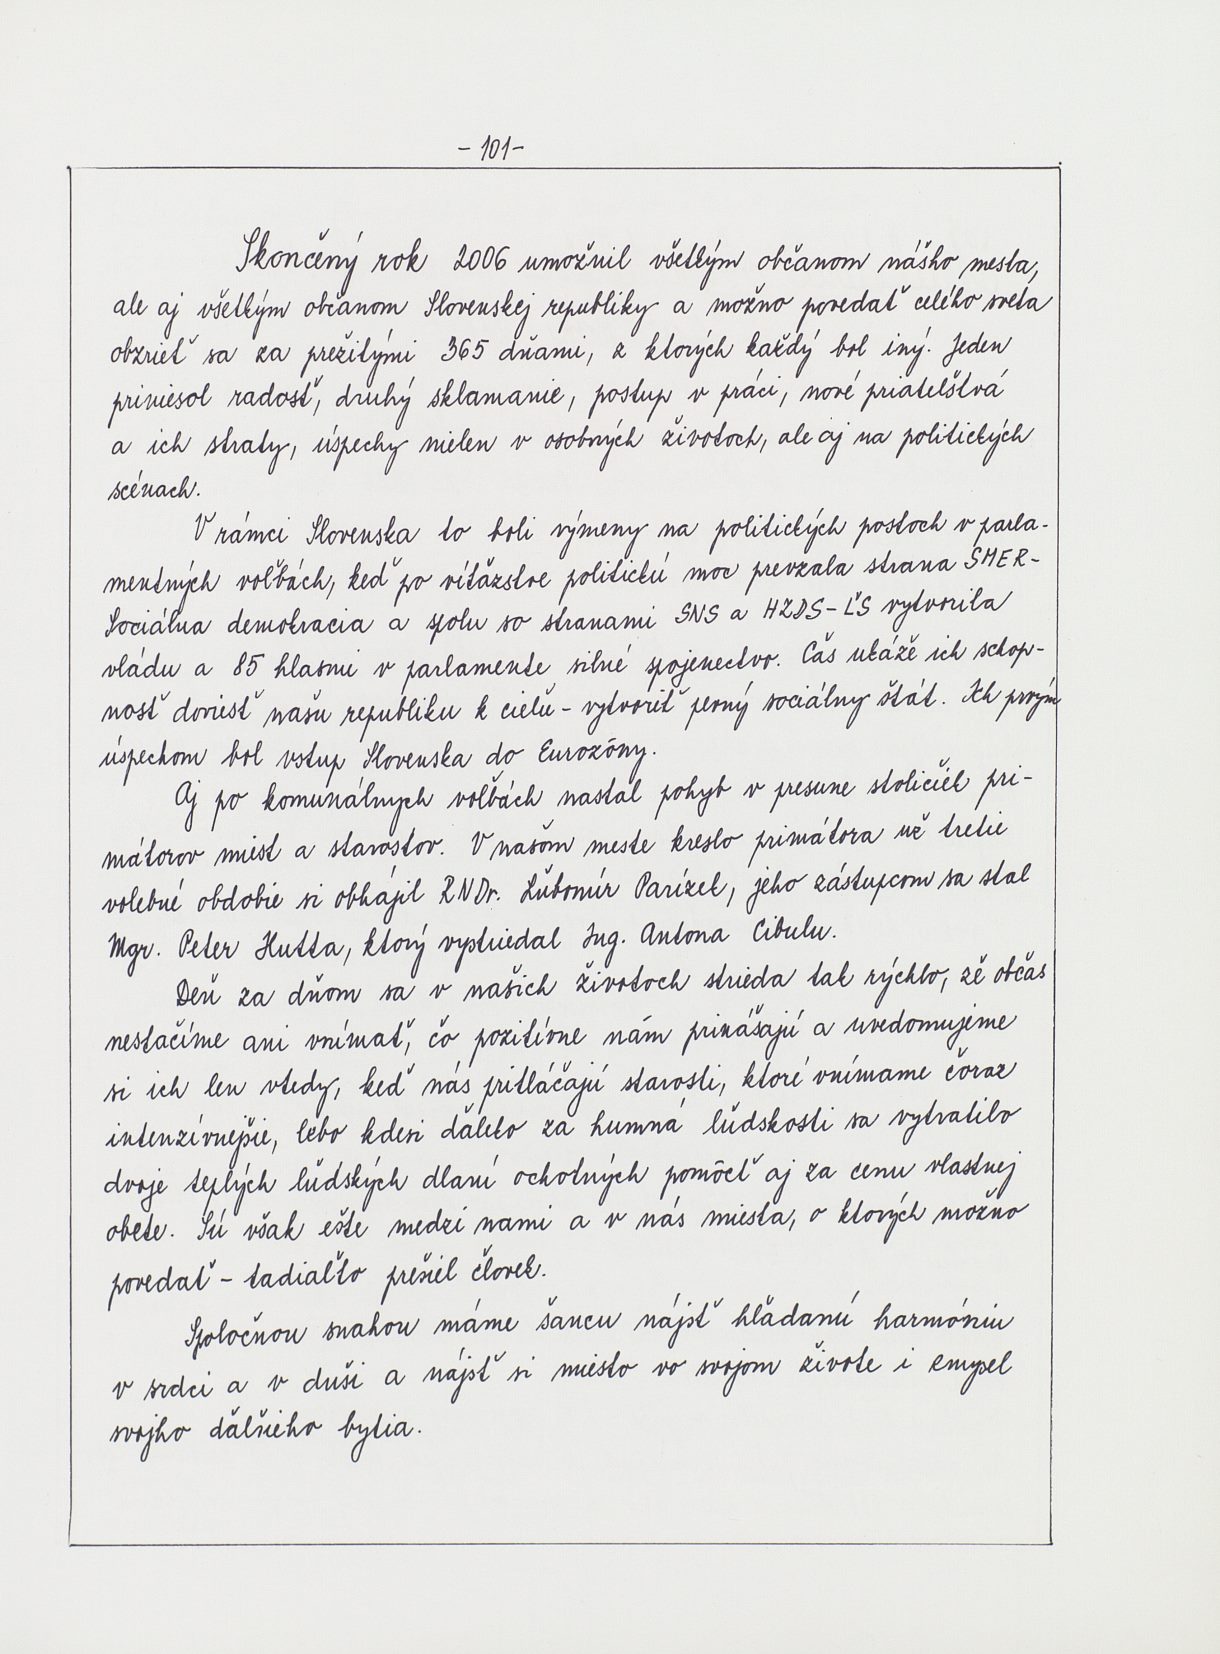 - 101 -
Skončený rok 2006 umožnil všetkým občanom nášho mesta,
ale aj všetkým občanom Slovenskej republiky a možno povedať celého sveta
obzrieť sa za prežitými 365 dňami, z ktorých každý bol iný. Jeden
priniesol radosť, druhý sklamanie, postup v práci, nové priateľstvá
a ich straty, úspechy nielen v osobných životoch, ale aj na politických
scénach.
V rámci Slovenska to boli výmeny na politických postoch v parla-
mentných voľbách, keď po víťazstve politickú moc prevzala strana SMER-
Sociálna demokracia a spolu so stranami SNS a HZDS-ĽS vytvorila
vládu a 85 hlasmi v parlamente silné spojenectvo. Čas ukáže ich schop-
nosť doviesť našu republiku k cieľu - vytvoriť pevný sociálny štát. Ich prvým
úspechom bol vstup Slovenska do Eurozóny.
Aj po komunálnych voľbách nastal pohyb v presune stoličiek pri-
mátorov miest a starostov. V našom meste kreslo primátora už tretie
volebné obdobie si obhájil RNDr. Ľubomír Parízek, jeho zástupcom sa stal
Mgr. Peter Hutta, ktorý vystriedal Ing. Antona Cibulu.
Deň za dňom sa v našich životoch strieda tak rýchlo, že občas
nestačíme ani vnímať, čo pozitívne nám prinášajú a uvedomujeme
si ich len vtedy, keď nás pritláčajú starosti, ktoré vnímame čoraz
intenzívnejšie, lebo kdesi ďaleko za humná ľudskosti sa vytratilo
dvoje teplých ľudských dlaní ochotných pomôcť aj za cenu vlastnej
obete. Sú však ešte medzi nami a v nás miesta, o ktorých možno
povedať - tadiaľto prešiel človek.
Spoločnou snahou máme šancu nájsť hľadanú harmóniu
v srdci a v duši a nájsť si miesto vo svojom živote i zmysel
svojho ďalšieho bytia.